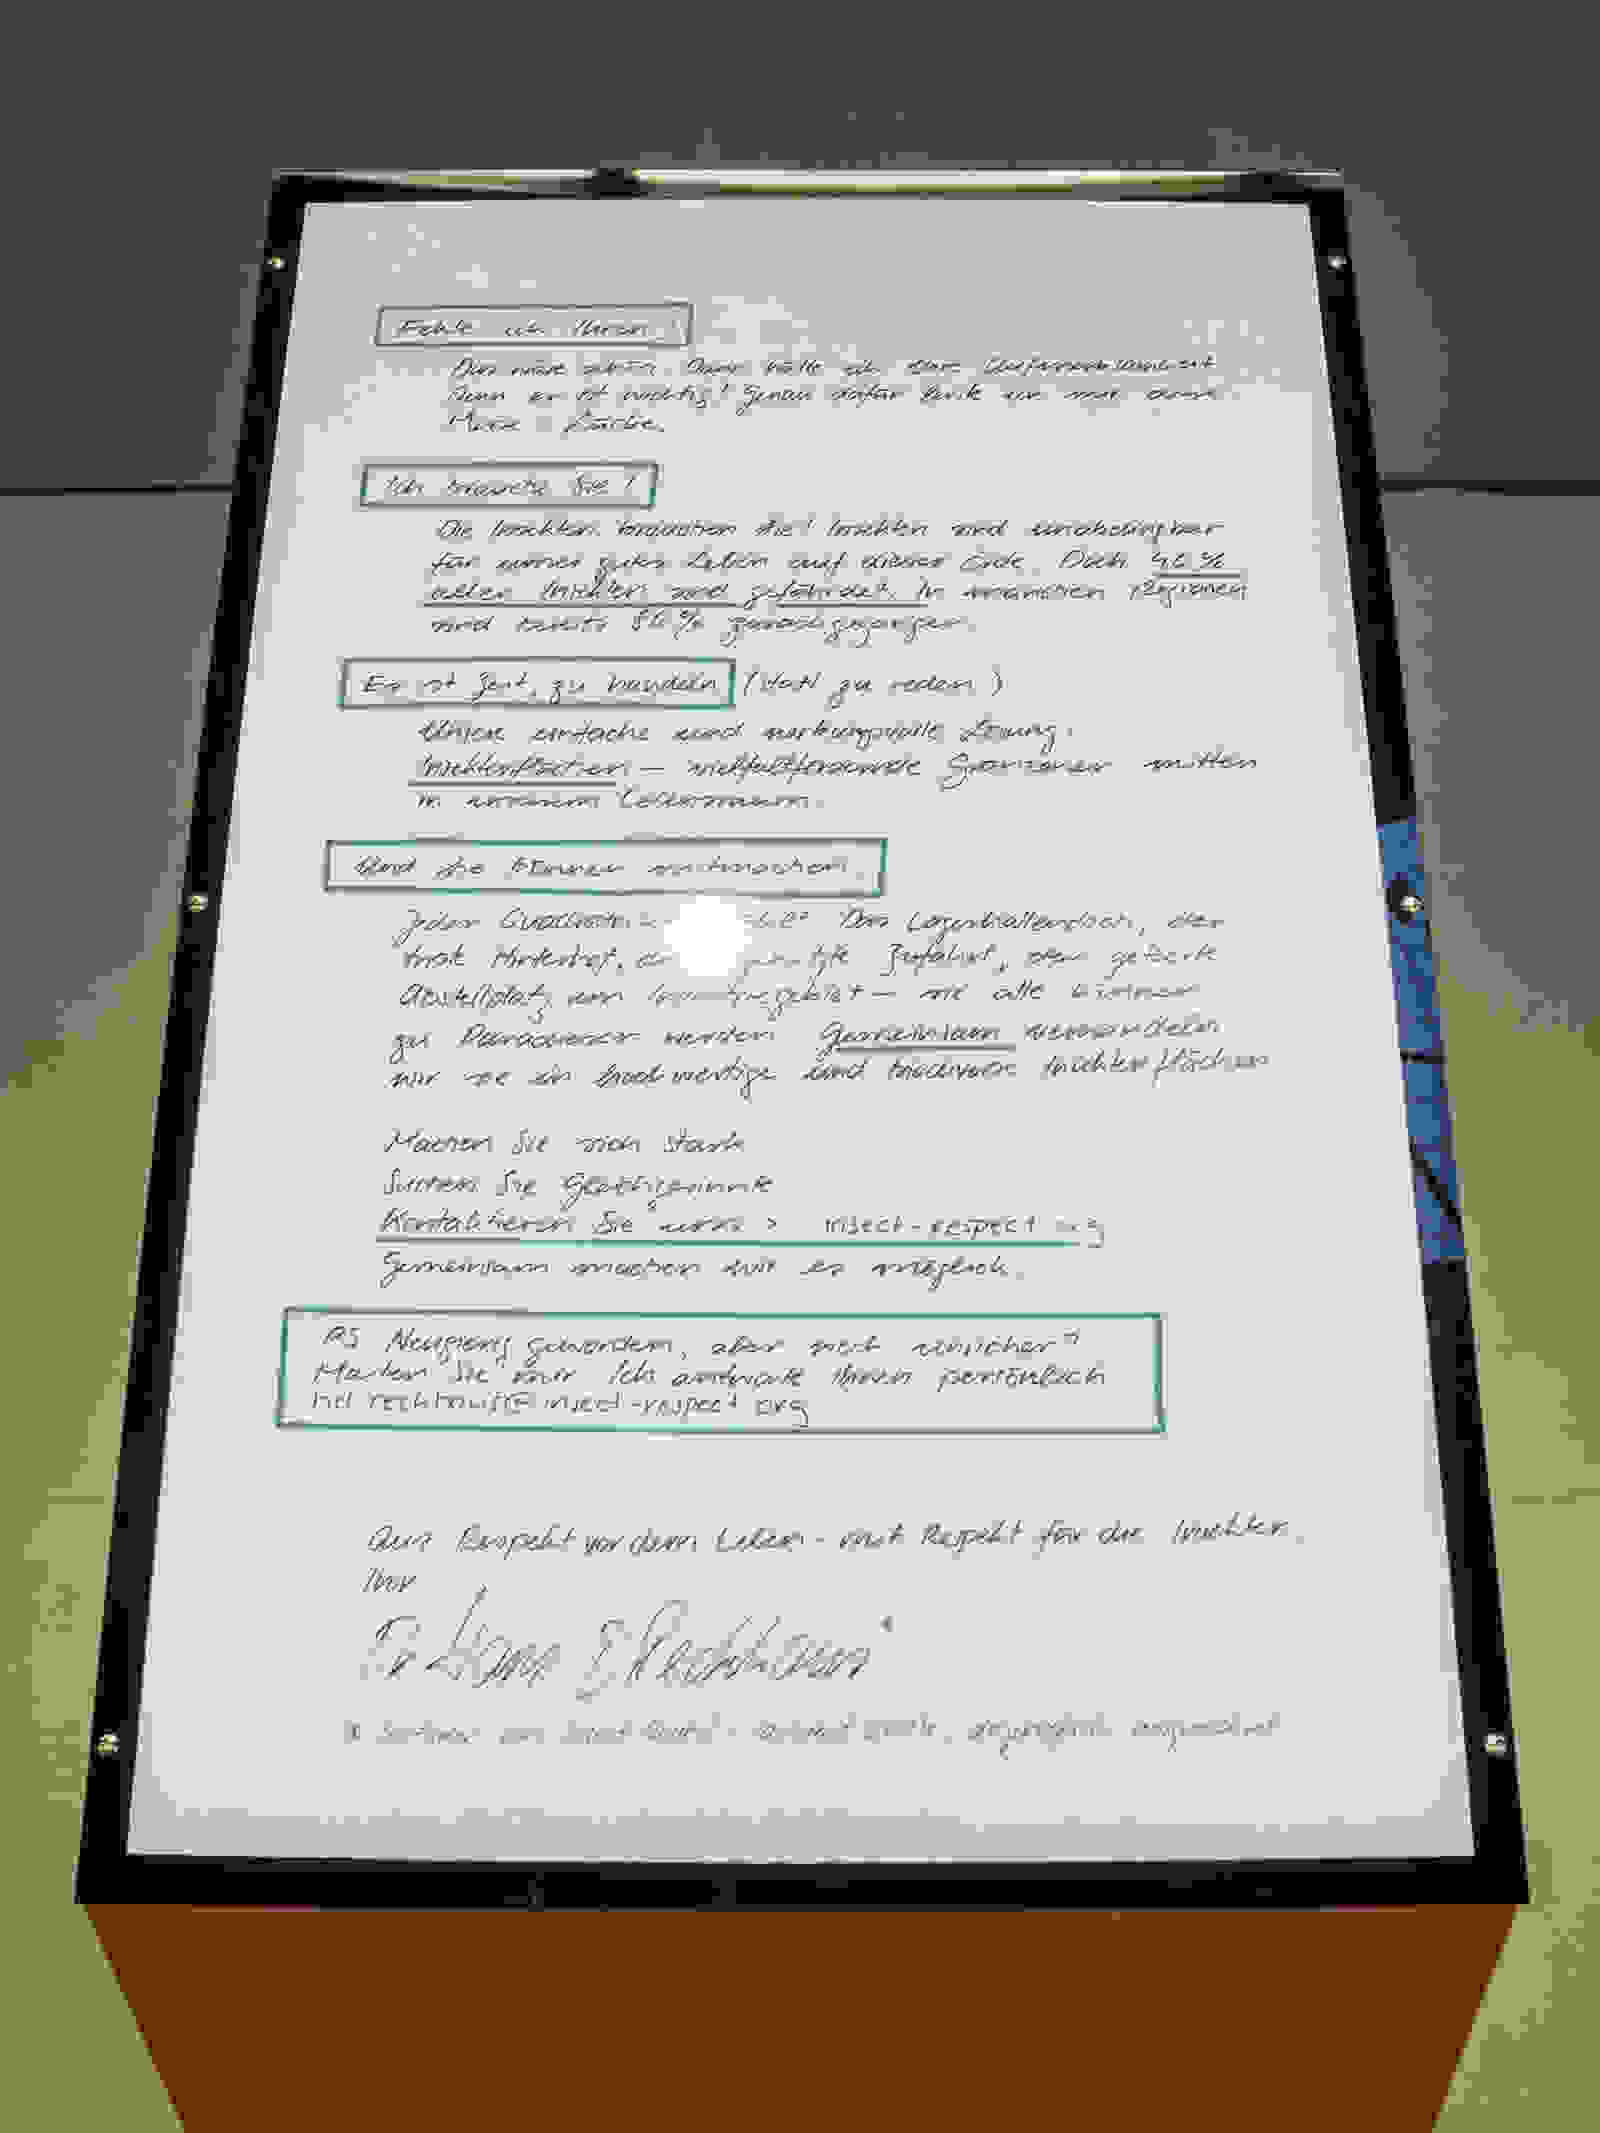 Fehle ich Ihnen?
Das wäre schön. Dann hätte ich Ihre Aufmerksamkeit
Denn es ist wichtig! Genau dafür
Ich brauche Sie!
Die Insekten brauchen Sie! Insekten sind unabdingbar
für unser gutes Leben auf dieser Erde. Doch 46 %
aller Insekten sind gefährdet. In manchen Regionen
sind bereits 86 % zurückgegangen.
Es ist Zeit, zu handeln (statt zu reden)
Unsere einfache und wirkungsvolle Lösung:
Insektenflächen – vielfaltfördernde Grünzonen mitten
in unserem Lebensraum.
Und Sie können mitmachen!
Jeder Das Lagerhallendach, der
triste Hinterhof, Zufahrt, der geteerte
Abstellplatz im Industriegebiet – sie alle können
zu Paradiesen werden. Gemeinsam verwandeln
wir sie in hochwertige und Insektenflächen
Machen Sie sich stark
Suchen Sie Gleichgesinnte
Kontaktieren Sie uns > insect-respect.org
Gemeinsam machen wir es möglich.
PS Neugierig geworden, aber noch unsicher?
Mailen Sie mir. Ich antworte Ihnen persönlich
hd.reckhaus@insect-respect.org
Aus Respekt vor dem Leben – mit Respekt für die Insekten.
Ihr
Dr. Hans D. Reckhaus*